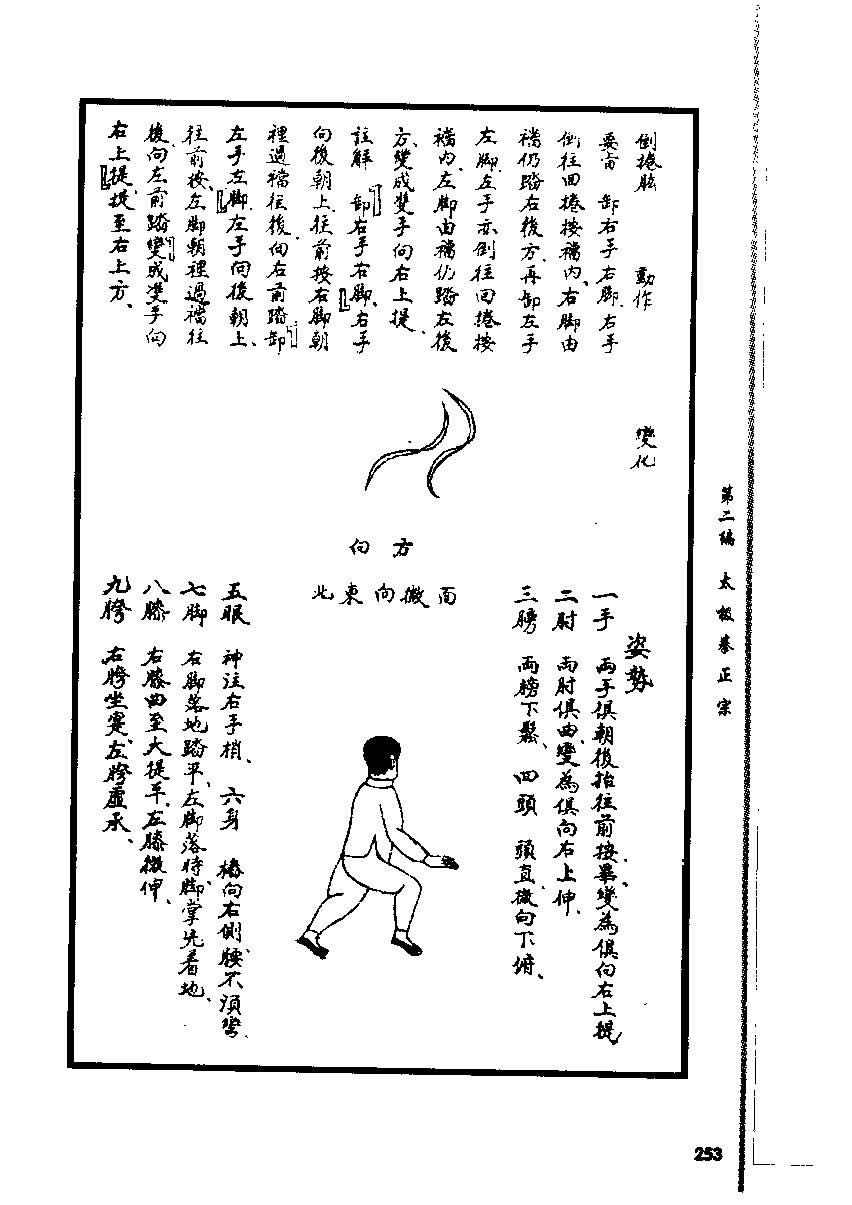 倒捲肱　動作　變化
要旨　卸右手右脚、右手
倒往回捲按襠内、右脚由
襠仍踏右後方、再卸左手
左脚、左手亦倒往回捲按
襠内、左脚由襠仍踏左後
方、變成雙手向右上提、
註解　「卸右手右脚」、右手
向後朝上、往前按右脚朝
裡過襠往後、向右前踏「卸
左手左脚」左手向後朝上、
往前按、左脚朝裡過襠往
後、向左前踏「變成雙手向
右上提」提至右上方、
向方
北東向微面
姿勢
一手　兩手俱朝後抬往前按畢、變為俱向右上提
二肘　兩肘俱曲、變為俱向右上伸、
三膀　兩膀下鬆、四頭　頭直、微向下俯、
五眼　神注右手梢、六身　樁向右側、腰不須彎、
七脚　右脚落地踏平、左脚落時脚掌先着地、
八膝　右膝曲至大提平、左膝微伸、
九胯　右胯坐寔、左胯虛承、
第二編　太極拳正宗
253